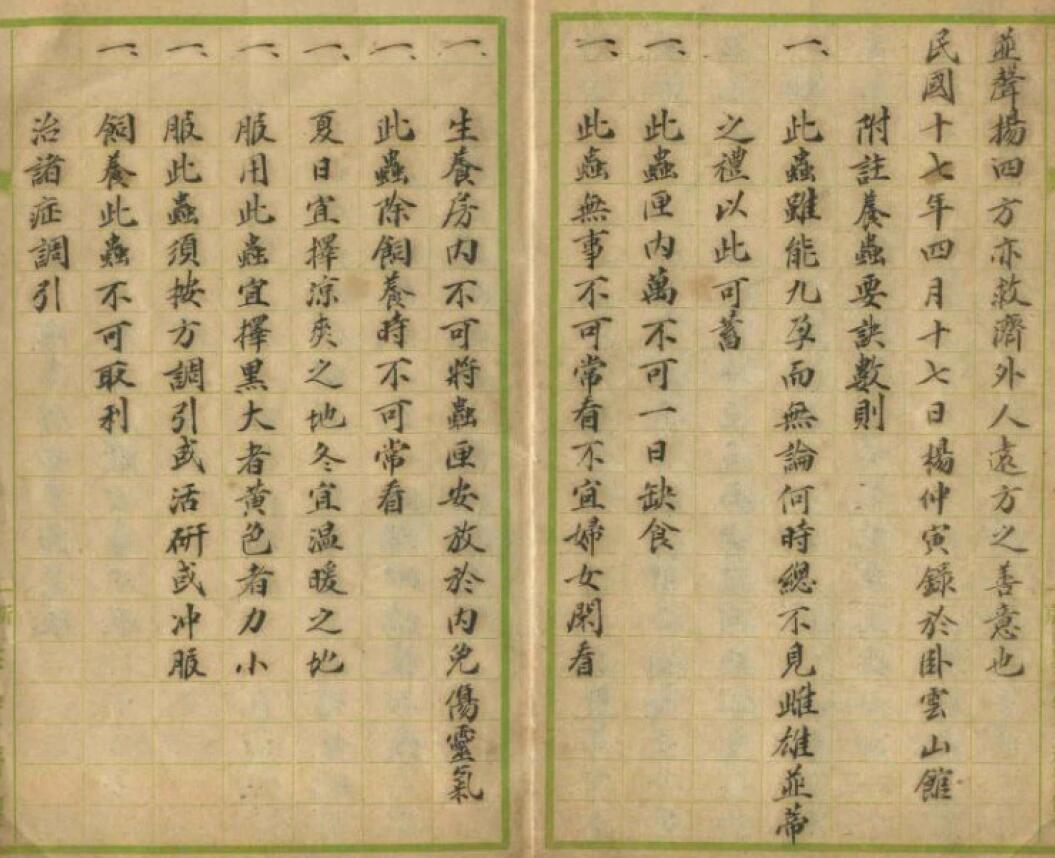 並聲揚四方亦救濟外人遠方之善意也
民國十七年四月十七日楊仲寅錄於卧雲山館
附註養蟲要訣數則
一、此蟲雖能九孕而無論何時總不見雌雄並蒂
之禮以此可蓄
一、此蟲匣内萬不可一日缺食
一、此蟲無事不可常看不宜婦女閑看
一、生養房内不可將蟲匣安放於内免傷靈氣
一、此蟲除飼養時不可常看
一、夏日宜擇涼爽之地冬宜温暖之地
一、服用此蟲宜擇黑大者黄色者力小
一、服此蟲須按方調引或活研或冲服
一、飼養此蟲不可取利
治諸症調引